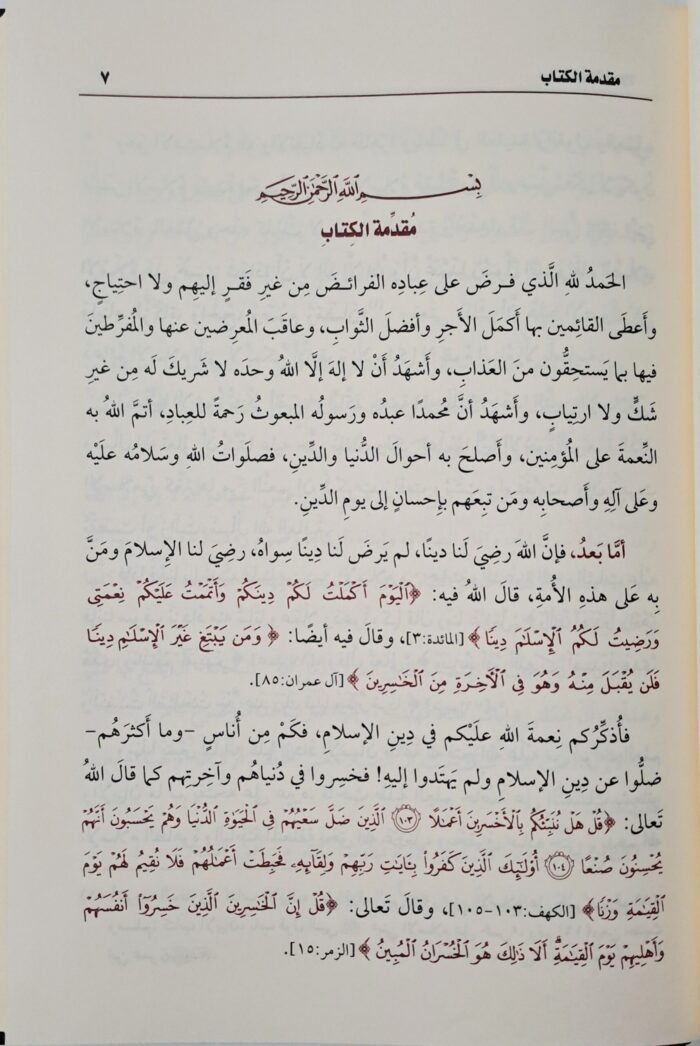 مقدمة الكتاب ٧
بِسْمِ اللَّهِ الرَّحْمَٰنِ الرَّحِيمِ
مُقدِّمة الكِتابِ
الحَمدُ للهِ الَّذي فـرضَ على عِبادِه الفرائـضَ مِن غيرِ فَقـرٍ إليهِم ولا احتِياجٍ،
وأَعطَى القائِمين بها أَكمَلَ الأَجرِ وأَفضلَ الثَّوابِ، وعاقَبَ المُعرِضين عنها والمُفرِّطينَ
فيها بما يَستحِقُّون منَ العَذابِ، وأَشهَدُ أَنْ لا إلهَ إلَّا اللهُ وحدَه لا شريكَ لَه مِن غيرِ
شَكٍّ ولا ارتِيابٍ، وأَشهَدُ أنَّ مُحمدًا عبدُه ورَسولُه المَبعوثُ رَحمةً للعِبادِ، أتمَّ اللهُ به
النِّعمةَ على المُؤمِنين، وأَصلحَ به أحوالَ الدُّنيا والدِّينِ، فصلَواتُ اللهِ وسَلامُه علَيْه
وعَلى آلِهِ وأَصحابِه ومَن تبِعَهم بإِحسانٍ إلى يومِ الدِّينِ.
أمَّا بَعدُ، فإنَّ اللهَ رضِيَ لَنا دينًا، لم يَرضَ لَنا دِينًا سِواهُ، رضِيَ لنا الإِسلامَ ومَنَّ
بِه عَلى هذهِ الأُمةِ، قالَ اللهُ فيه: ﴿ٱلْيَوْمَ أَكْمَلْتُ لَكُمْ دِينَكُمْ وَأَتْمَمْتُ عَلَيْكُمْ نِعْمَتِى
وَرَضِيتُ لَكُمُ ٱلْإِسْلَٰمَ دِينًا﴾ [المائدة:٣]، وقالَ فيه أيضًا: ﴿وَمَن يَبْتَغِ غَيْرَ ٱلْإِسْلَٰمِ دِينًا
فَلَن يُقْبَلَ مِنْهُ وَهُوَ فِى ٱلْآخِرَةِ مِنَ ٱلْخَٰسِرِينَ﴾ [آل عمران:٨٥].
فأُذكِّرُكم نِعمةَ اللهِ علَيْكم في دِينِ الإسلامِ، فكَمْ مِن أُناسٍ -وما أَكثرَهُم-
ضلُّوا عن دِينِ الإسلامِ ولم يَهتَدوا إليهِ! فخسِروا في دُنياهُم وآخِرتِهم كما قالَ اللهُ
تَعالى: ﴿قُلْ هَلْ نُنَبِّئُكُم بِٱلْأَخْسَرِينَ أَعْمَٰلًا ۝١٠٣ ٱلَّذِينَ ضَلَّ سَعْيُهُمْ فِى ٱلْحَيَوٰةِ ٱلدُّنْيَا وَهُمْ يَحْسَبُونَ أَنَّهُمْ
يُحْسِنُونَ صُنْعًا ۝١٠٤ أُو۟لَٰٓئِكَ ٱلَّذِينَ كَفَرُوا۟ بِـَٔايَٰتِ رَبِّهِمْ وَلِقَآئِهِۦ فَحَبِطَتْ أَعْمَٰلُهُمْ فَلَا نُقِيمُ لَهُمْ يَوْمَ
ٱلْقِيَٰمَةِ وَزْنًا﴾ [الكهف:١٠٣-١٠٥]، وقالَ تَعالى: ﴿قُلْ إِنَّ ٱلْخَٰسِرِينَ ٱلَّذِينَ خَسِرُوٓا۟ أَنفُسَهُمْ
وَأَهْلِيهِمْ يَوْمَ ٱلْقِيَٰمَةِ أَلَا ذَٰلِكَ هُوَ ٱلْخُسْرَانُ ٱلْمُبِينُ﴾ [الزمر:١٥].